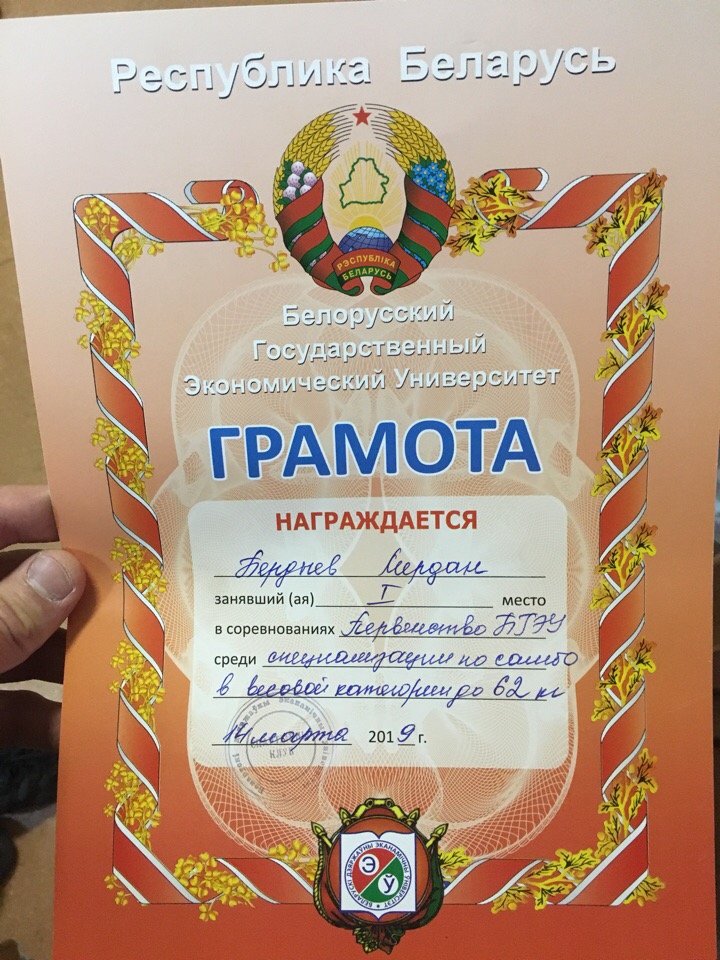 Республика Беларусь
РЭСПУБЛІКА
БЕЛАРУСЬ
Белорусский
Государственный
Экономический Университет
ГРАМОТА
НАГРАЖДАЕТСЯ
Бердыев Мердан
занявший (ая) I место
в соревнованиях Первенство БГЭУ
среди специализации по самбо
в весовой категории до 62 кг
14 марта 2019 г.
КЛУБ
БЕЛАРУСКІ ДЗЯРЖАЎНЫ ЭКАНАМІЧНЫ УНІВЕРСІТЭТ
Э
Ў